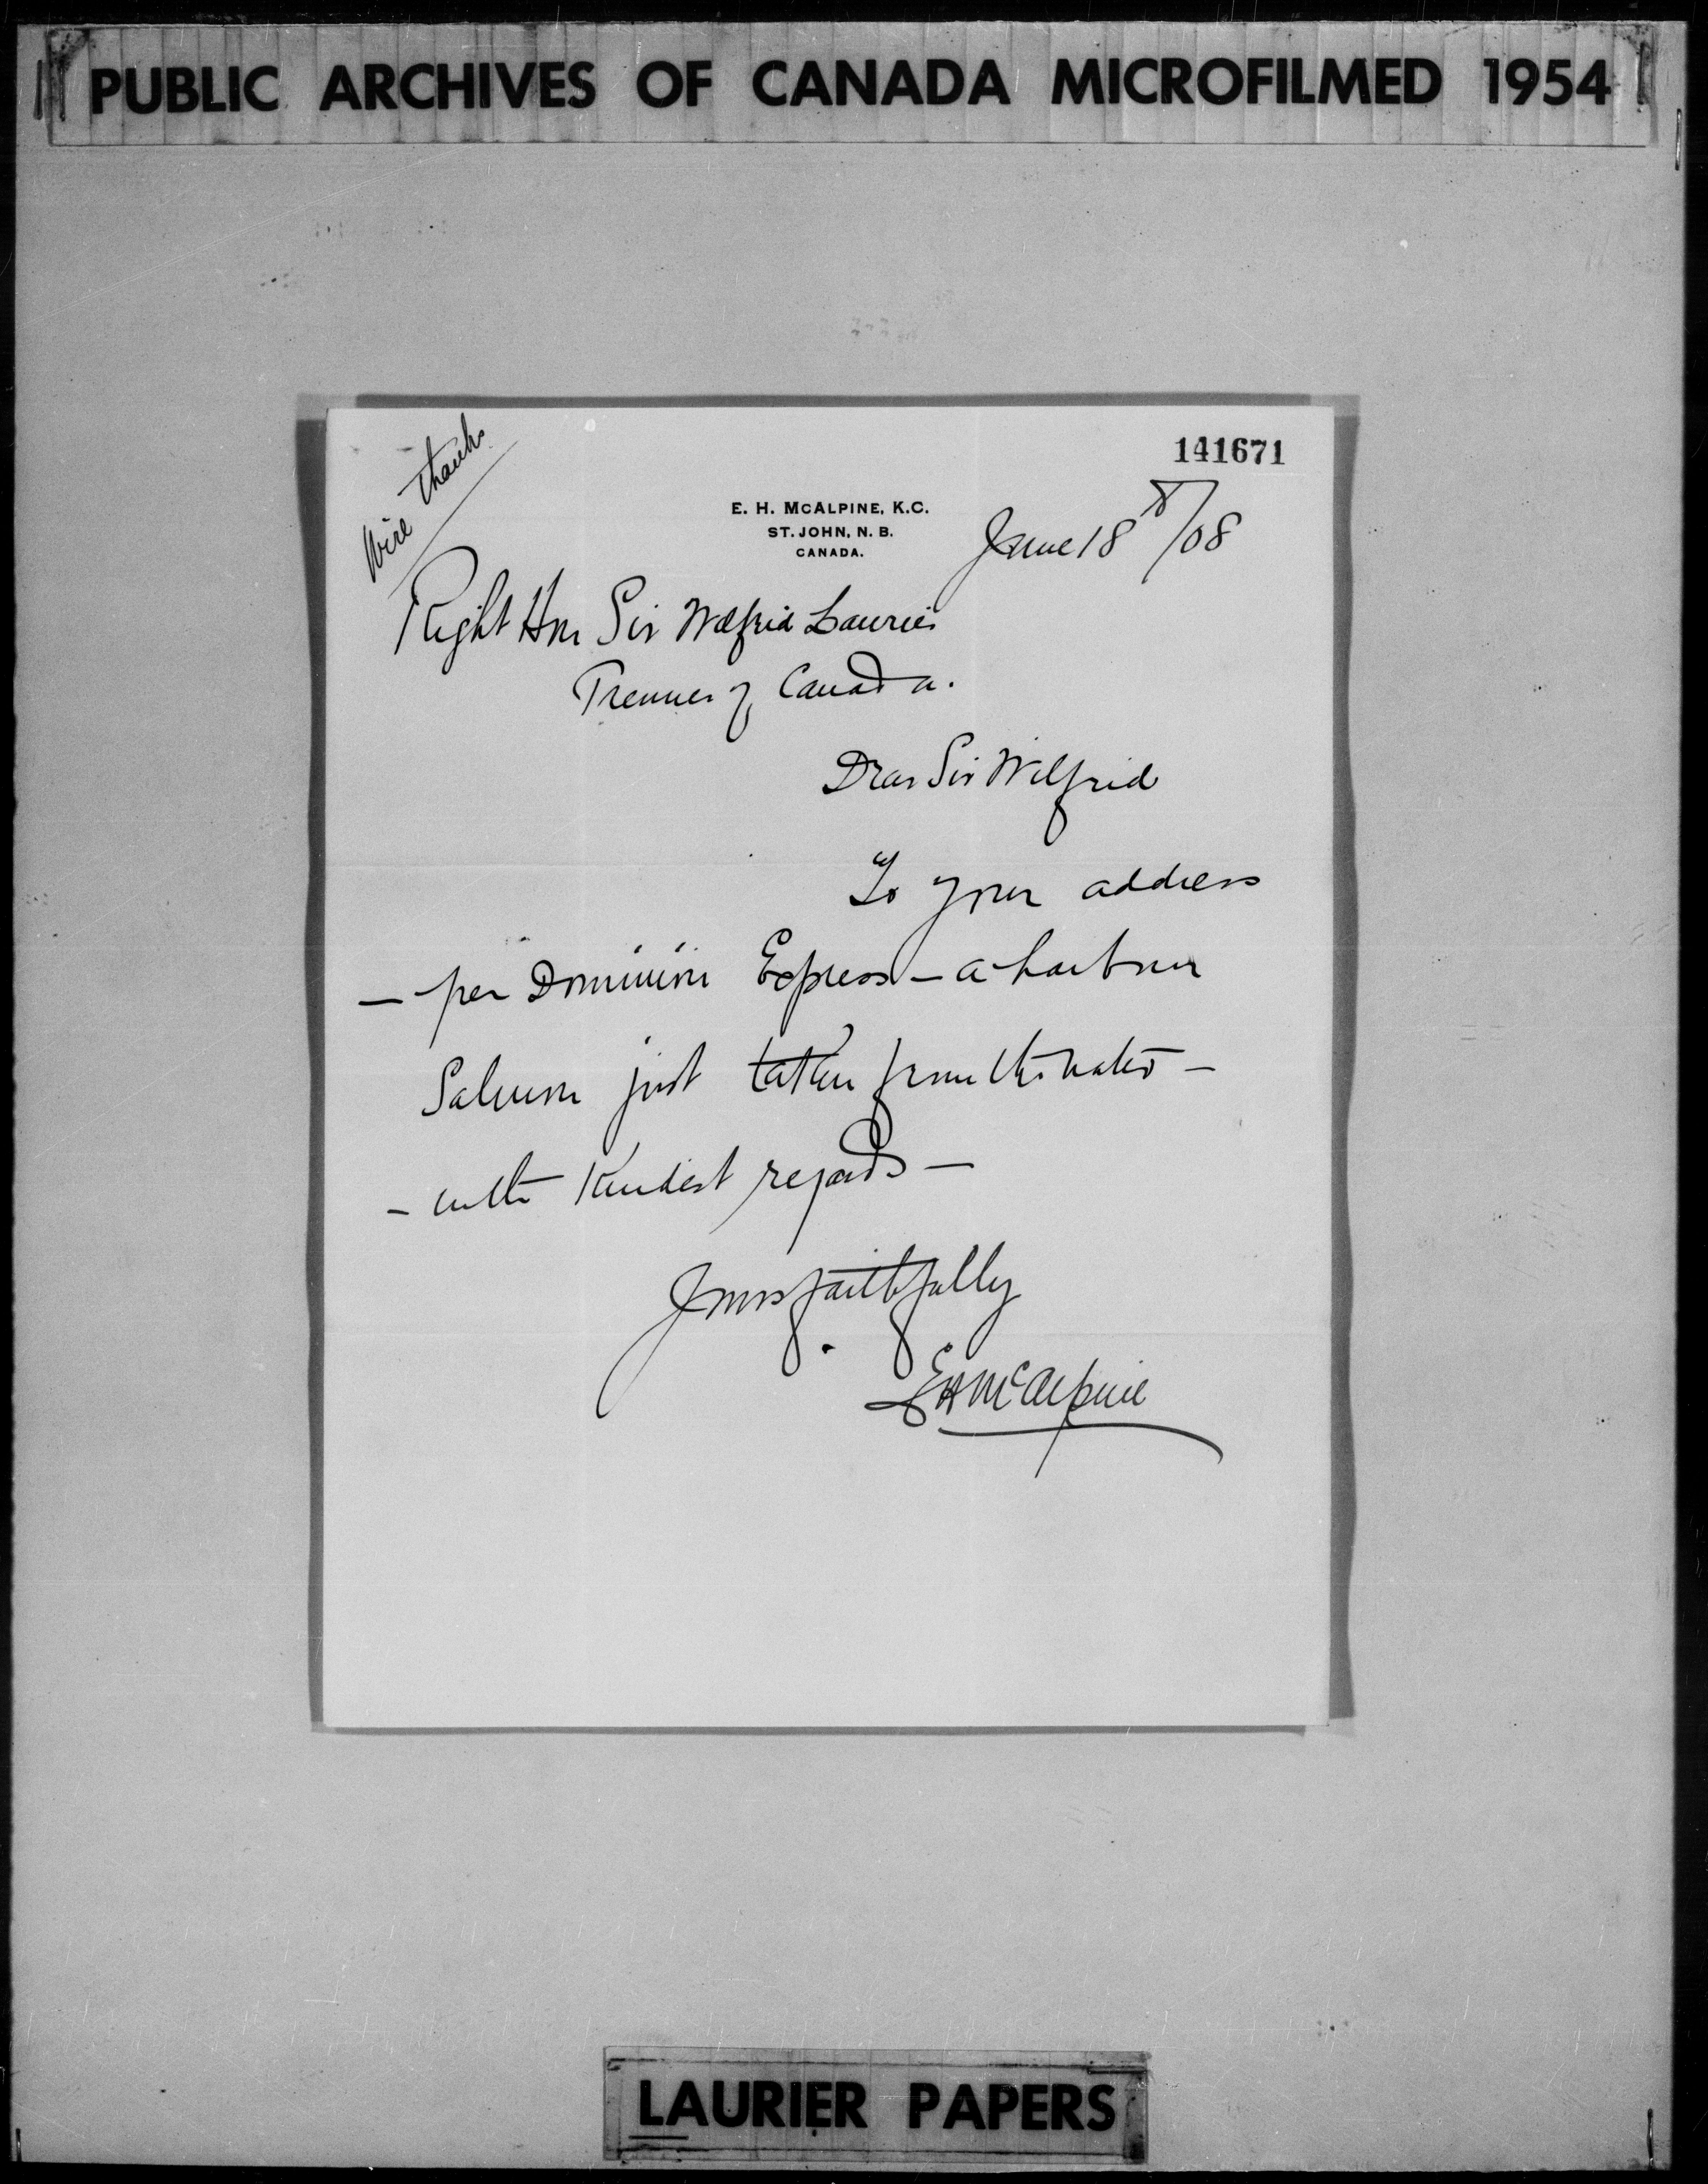 PUBLIC ARCHIVES OF CANADA MICROFILMED 1954
Wire thanks
141671
E. H. MCALPINE, K.C.
ST. JOHN, N. B.
CANADA.
June 18th/08
Right Hon Sir Wilfrid Laurier
Premier of Canada.
Dear Sir Wilfrid
To your address
- per Dominion Express - a harbour
Salmon just taken from the water -
- with kindest regards -
Yours faithfully
E H McAlpine
LAURIER PAPERS